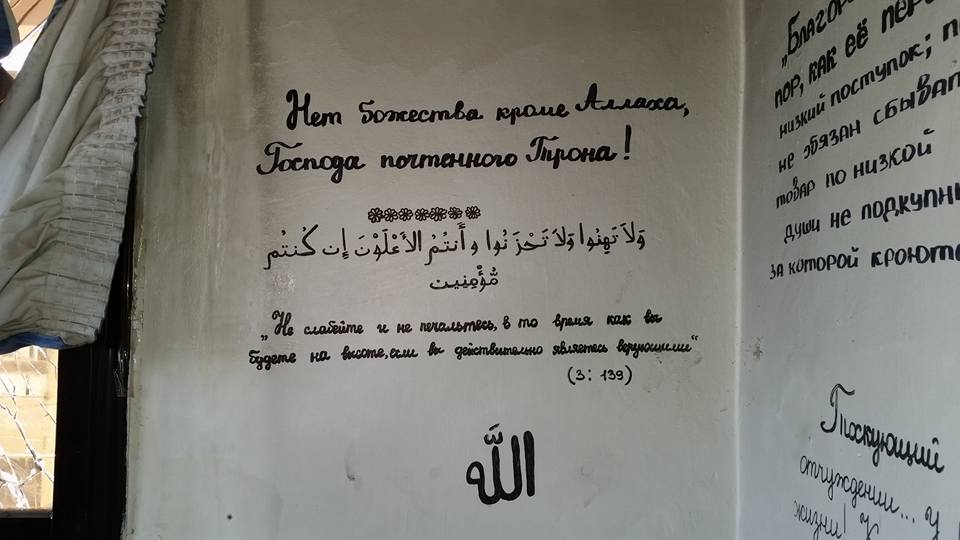 Нет божества кроме Аллаха,
Господа почтенного Трона!
وَلَا تَهِنُوا وَلَا تَحْزَنُوا وَأَنتُمُ الأَعْلَوْنَ إِن كُنتُم
مُّؤْمِنِين
„Не слабейте и не печальтесь, в то время как вы
будете на высоте, если вы действительно являетесь верующими“
(3: 139)
الله
„Благор
пор, как её пер
низкий поступок; п
не обязан сбыват
товар по низкой
души не подкупн
за которой кроютс
Тоскующий
отчуждении... у
жизни!